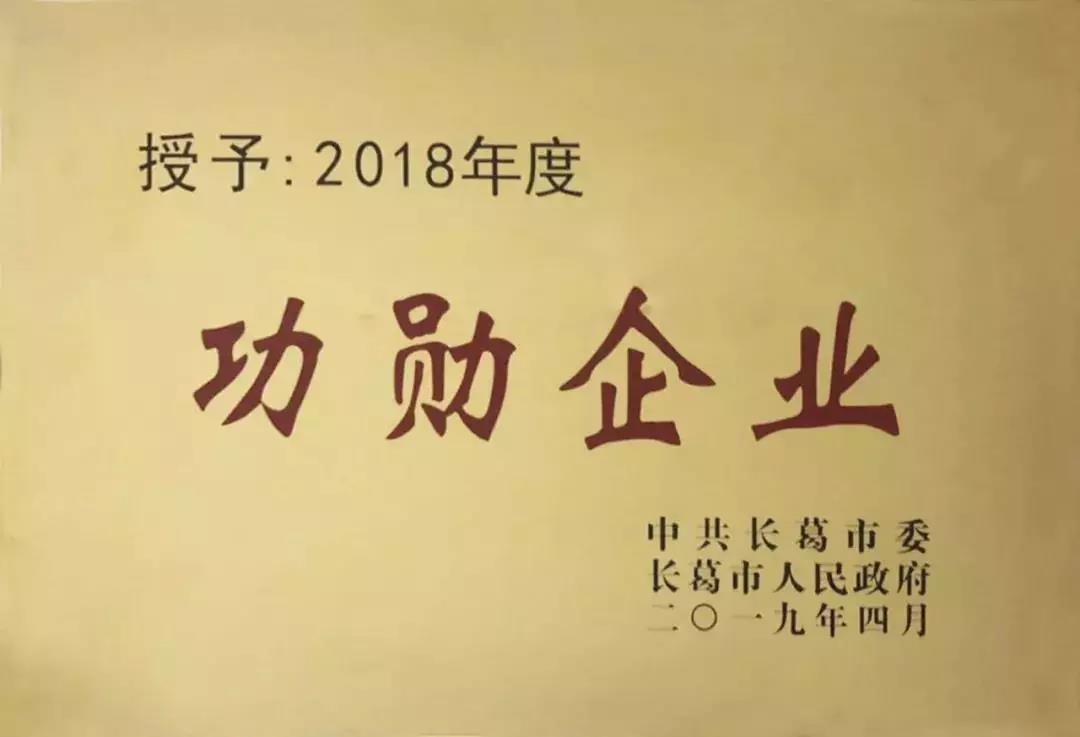 授予:2018年度
功勋企业
中共长葛市委
长葛市人民政府
二〇一九年四月